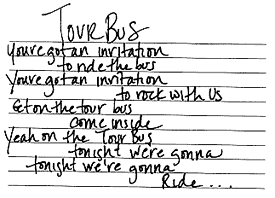 TOUR BUS
You're got an invitation
to ride the bus
You're got an invitation
to rock with us
Get on the tour bus
come inside
Yeah on the Tour Bus
tonight we're gonna
tonight we're gonna
Ride...